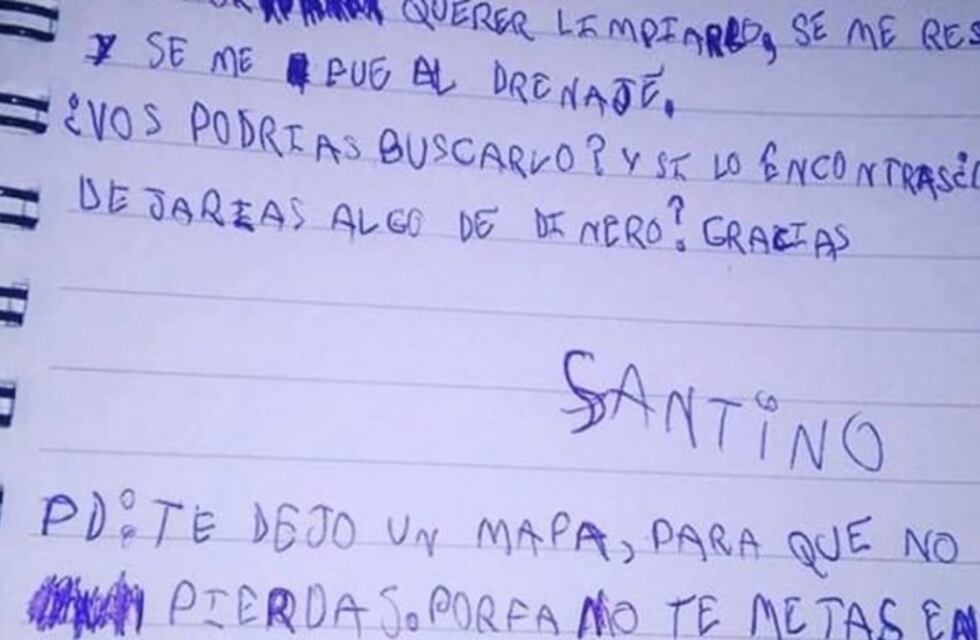 QUERER LIMPIARLO, SE ME RES
Y SE ME FUE AL DRENAJE.
¿VOS PODRIAS BUSCARLO? Y SI LO ENCONTRAS ¿
DEJARIAS ALGO DE DINERO? GRACIAS
SANTINO
PD: TE DEJO UN MAPA, PARA QUE NO
PIERDAS. PORFA NO TE METAS EN